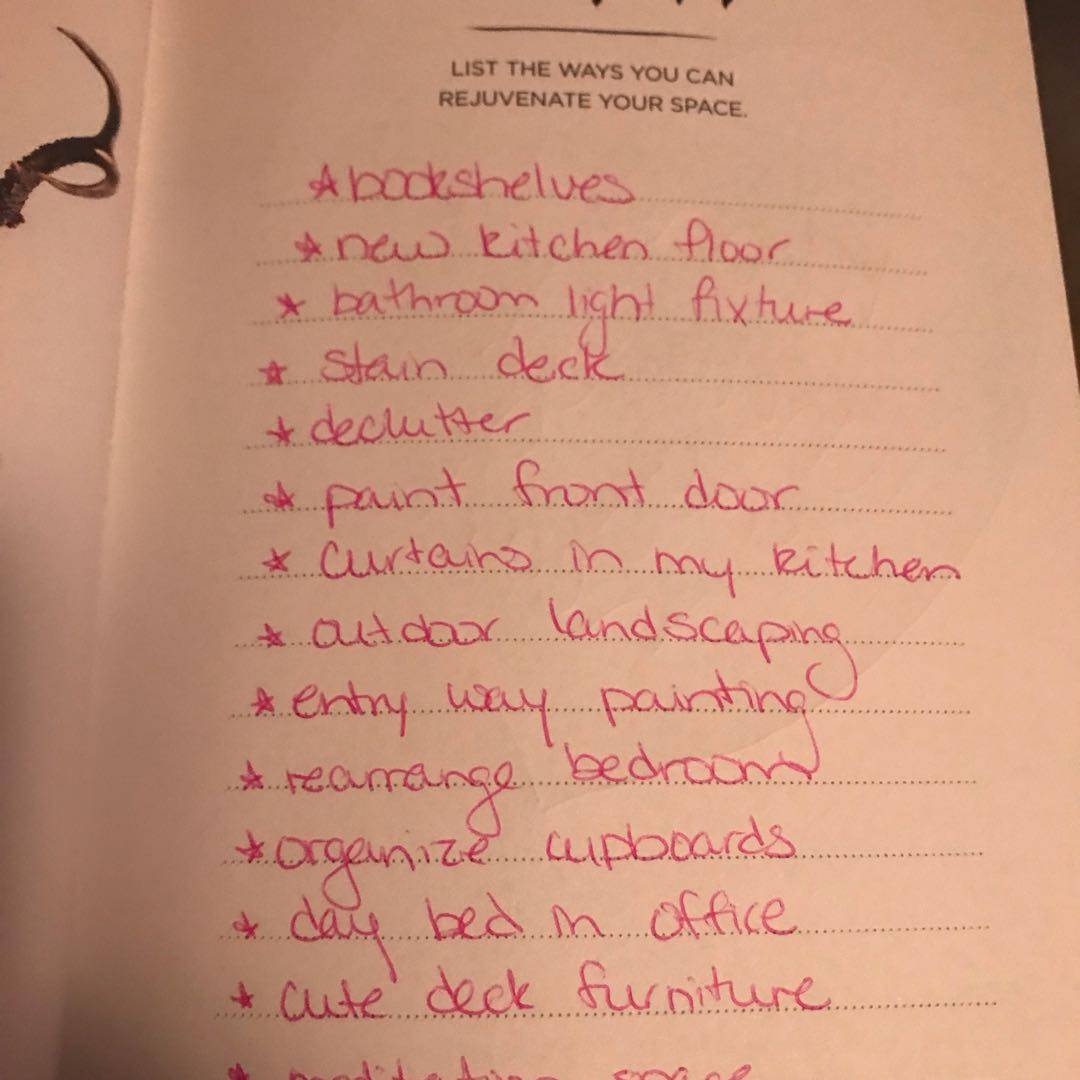 LIST THE WAYS YOU CAN
REJUVENATE YOUR SPACE.
☆bookshelves
☆ new kitchen floor
☆ bathroom light fixture
☆ stain deck
☆ declutter
☆ paint front door
☆ curtains in my kitchen
☆ outdoor landscaping
☆ entry way painting
☆ rearrange bedroom
☆ organize cupboards
☆ day bed in office
☆ cute deck furniture
☆ meditation space